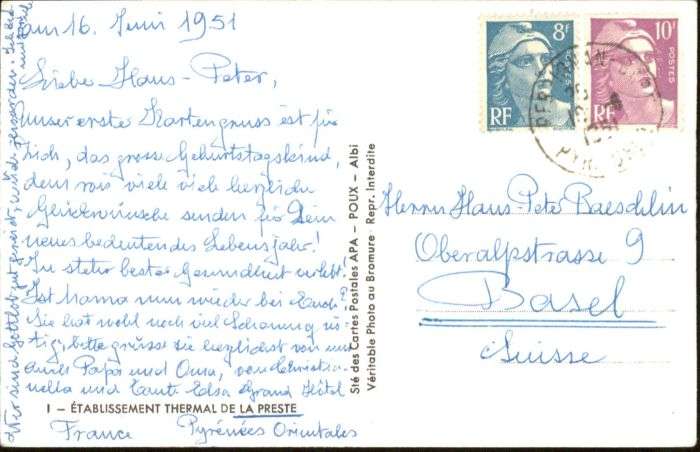 am 16. Juni 1951
Liebe Hans-Peter,
unser erste Kartengruss ist für
Dich, das grosse Geburtstagskind,
dem wir viele viele herzliche
Glückwünsche senden für Dein
neues bedeutendes Lebensjahr!
In steter bester Gesundheit verlebt!
Ist Mama nun wieder bei Euch?
Sie hat wohl noch viel Schonung nö-
tig, bitte grüsse sie herzlichst von uns
auch Papa und Oma, von
und Tante Elsa Grand Hôtel
I – ÉTABLISSEMENT THERMAL DE LA PRESTE
France Pyrénées Orientales
Wir sind Gottlob gut gereist,
Sté des Cartes Postales APA – POUX – Albi
Véritable Photo au Bromure - Repr. Interdite
8F
POSTES
RF
10F
POSTES
RF
PERPIGNAN
Herrn Hans-Peter Baeschlin
Oberalpstrasse 9
Basel
Suisse